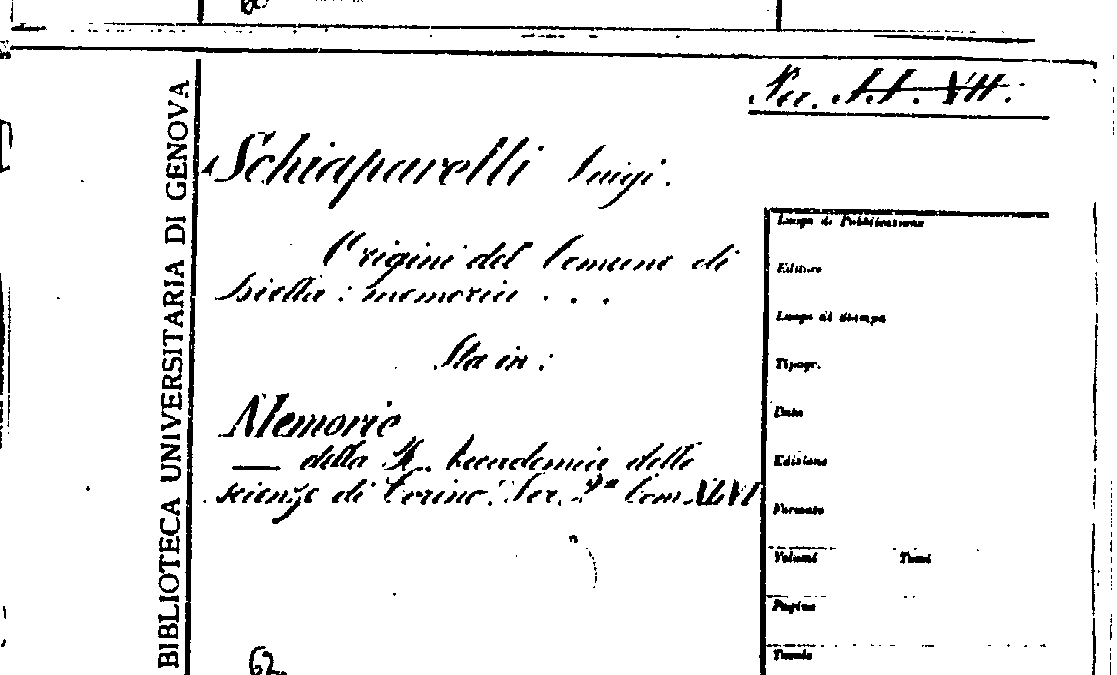 Per.
Schiaparelli Luigi.
Origini del Comune di
Biella : memoria . . .
Sta in :
Memorie
— della R. Accademia delle
scienze di Torino. Ser. 2ª Tom XLVI
BIBLIOTECA UNIVERSITARIA DI GENOVA
Luogo di Pubblicazione
Editore
Luogo di stampa
Tipogr.
Data
Edizione
Formato
Volumi Tomi
Pagine
Tavole
62.